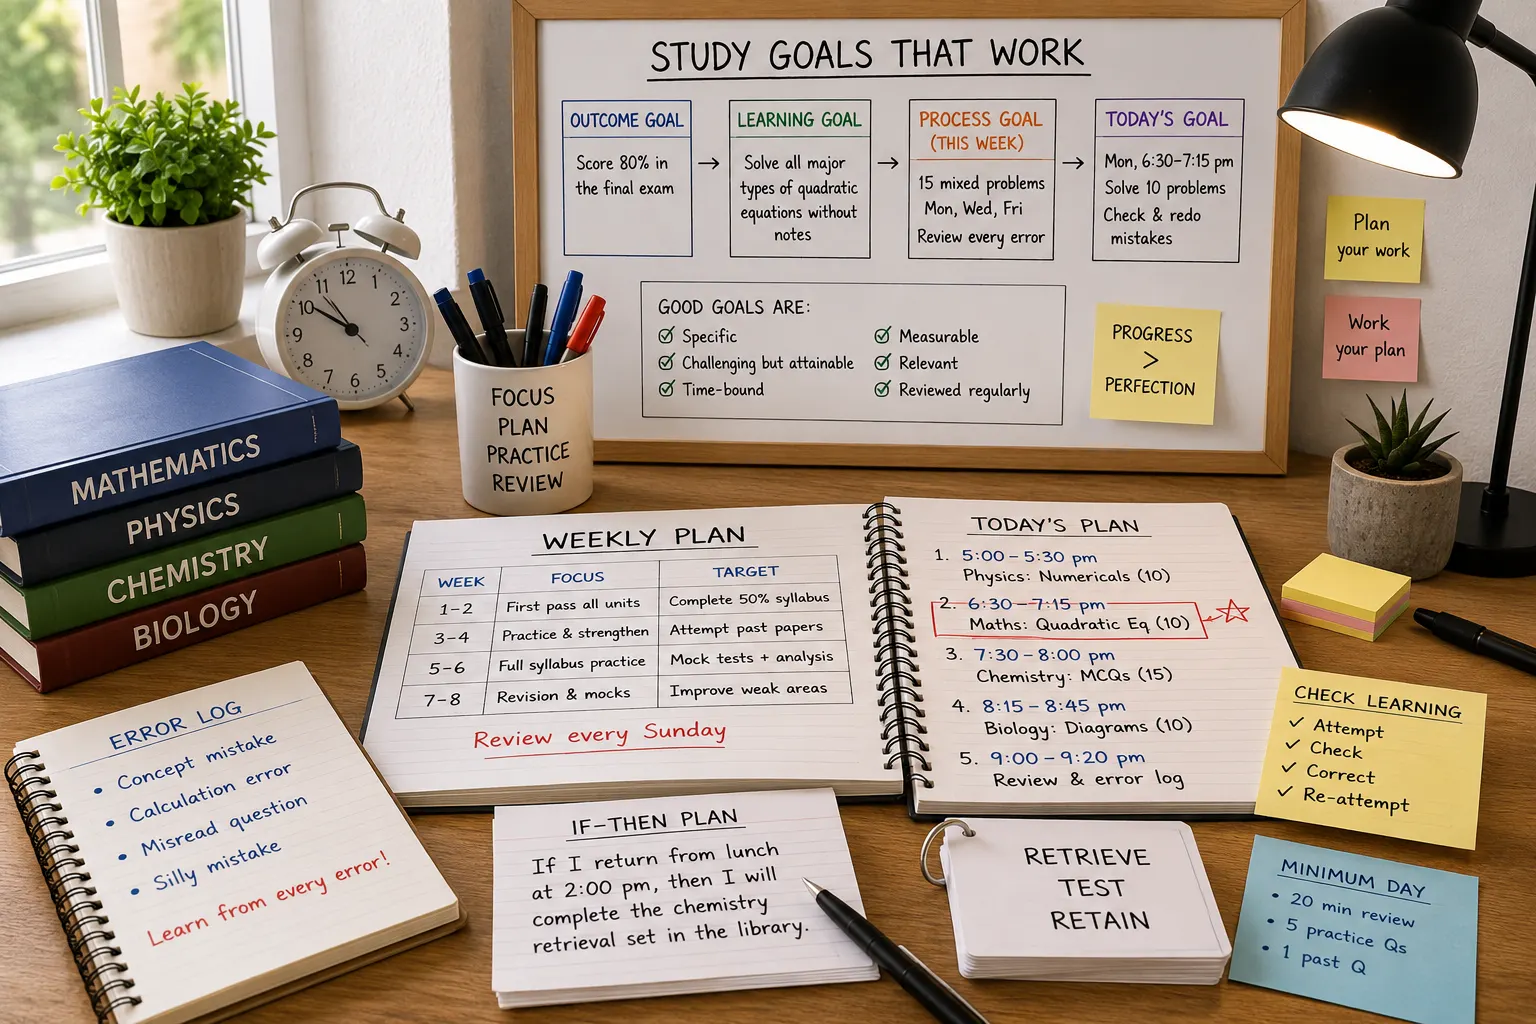 STUDY GOALS THAT WORK
OUTCOME GOAL
Score 80% in
the final exam
LEARNING GOAL
Solve all major
types of quadratic
equations without
notes
PROCESS GOAL
(THIS WEEK)
15 mixed problems
Mon, Wed, Fri
Review every error
TODAY'S GOAL
Mon, 6:30-7:15 pm
Solve 10 problems
Check & redo
mistakes
GOOD GOALS ARE:
Specific
Challenging but attainable
Time-bound
Measurable
Relevant
Reviewed regularly
PROGRESS
>
PERFECTION
Plan
your work
Work
your plan
12
1
2
3
4
5
6
7
8
9
10
11
FOCUS
PLAN
PRACTICE
REVIEW
MATHEMATICS
PHYSICS
CHEMISTRY
BIOLOGY
WEEKLY PLAN
WEEK FOCUS TARGET
1-2 First pass all units Complete 50% syllabus
3-4 Practice & strengthen Attempt past papers
5-6 Full syllabus practice Mock tests + analysis
7-8 Revision & mocks Improve weak areas
Review every Sunday
TODAY'S PLAN
1. 5:00 – 5:30 pm
Physics: Numericals (10)
2. 6:30 – 7:15 pm
Maths: Quadratic Eq (10)
3. 7:30 – 8:00 pm
Chemistry: MCQs (15)
4. 8:15 – 8:45 pm
Biology: Diagrams (10)
5. 9:00 – 9:20 pm
Review & error log
ERROR LOG
• Concept mistake
• Calculation error
• Misread question
• Silly mistake
Learn from every error!
IF-THEN PLAN
If I return from lunch
at 2:00 pm, then I will
complete the chemistry
retrieval set in the library.
RETRIEVE
TEST
RETAIN
CHECK LEARNING
✓ Attempt
✓ Check
✓ Correct
✓ Re-attempt
MINIMUM DAY
• 20 min review
• 5 practice Qs
• 1 past Q